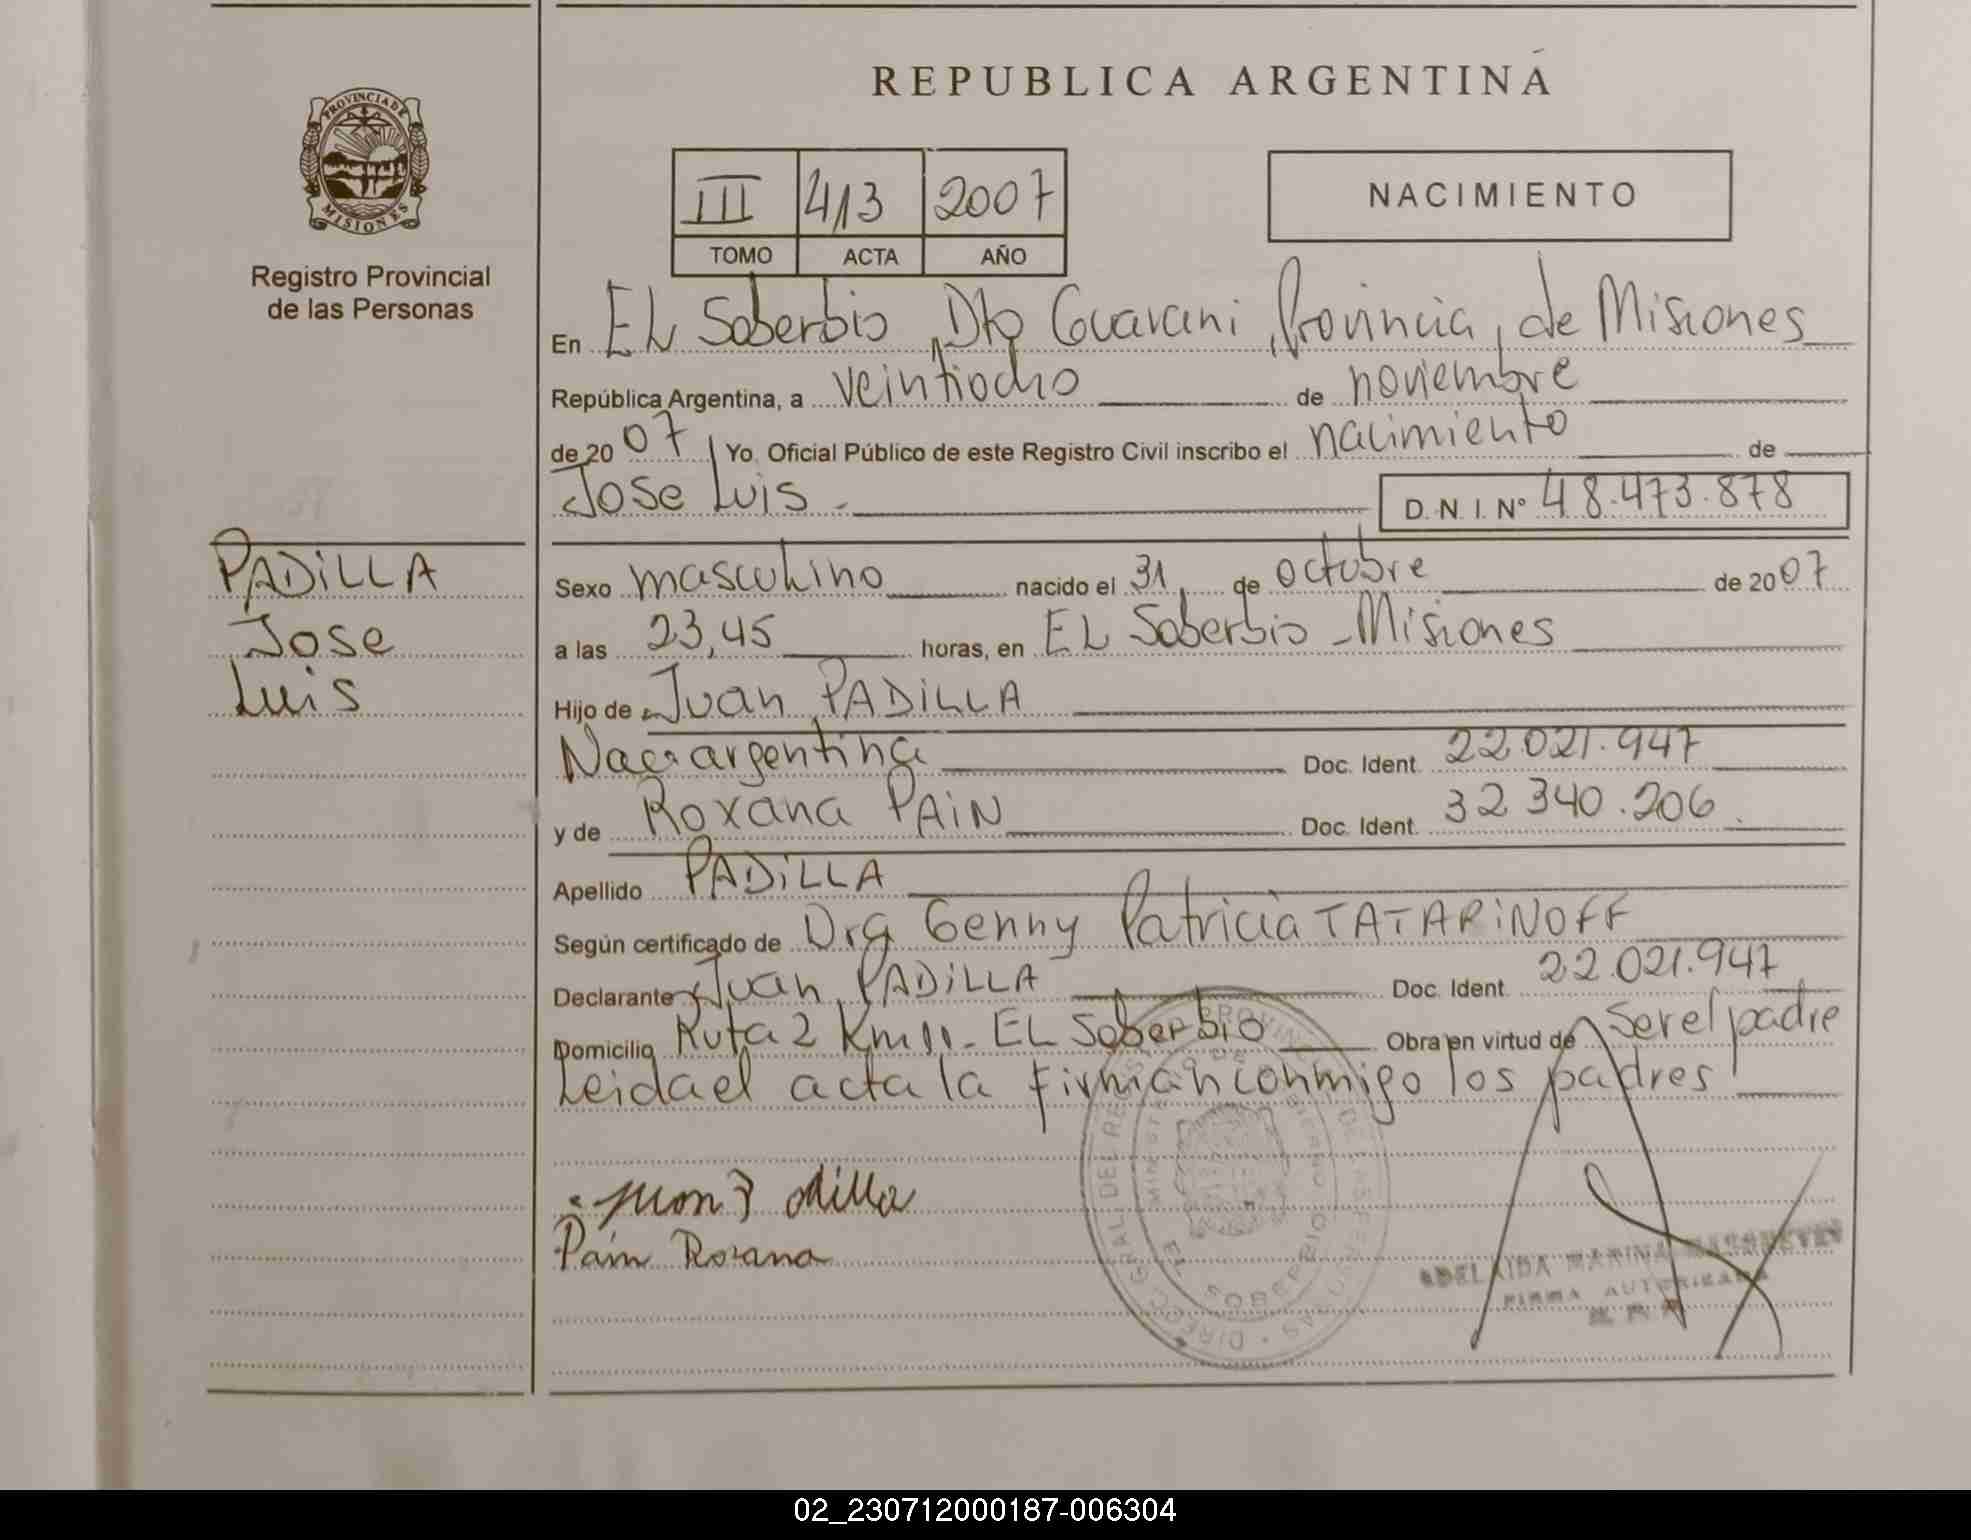 REPUBLICA ARGENTINA
PROVINCIA DE
MISIONES
Registro Provincial
de las Personas
III 413 2007
TOMO ACTA AÑO
NACIMIENTO
En EL Soberbio, Dto Guarani, Provincia, de Misiones
República Argentina, a veintiocho de noviembre
de 2007 Yo Oficial Público de este Registro Civil inscribo el nacimiento de
Jose Luis.
D. N. I. Nº 48.473.878
PADiLLA
Jose
Luis
Sexo masculino nacido el 31 de octubre de 2007
a las 23,45 horas, en EL Soberbio - Misiones
Hijo de Juan PADiLLA
Nac. argentina Doc. Ident. 22.021.947
y de Roxana PAiN Doc. Ident. 32 340.206
Apellido PADiLLA
Según certificado de Dra Genny Patricia TATARiNOFF
Declarante Juan PADiLLA Doc. Ident. 22.021.947
Domicilio Ruta 2 Km 11. EL Soberbio Obra en virtud de Ser el padre
Leida el acta la firman conmigo los padres
Juan Padilla
Pain Roxana
EL SOBERBIO
ADELAIDA MARINA
FIRMA AUTORIZADA
02_230712000187-006304